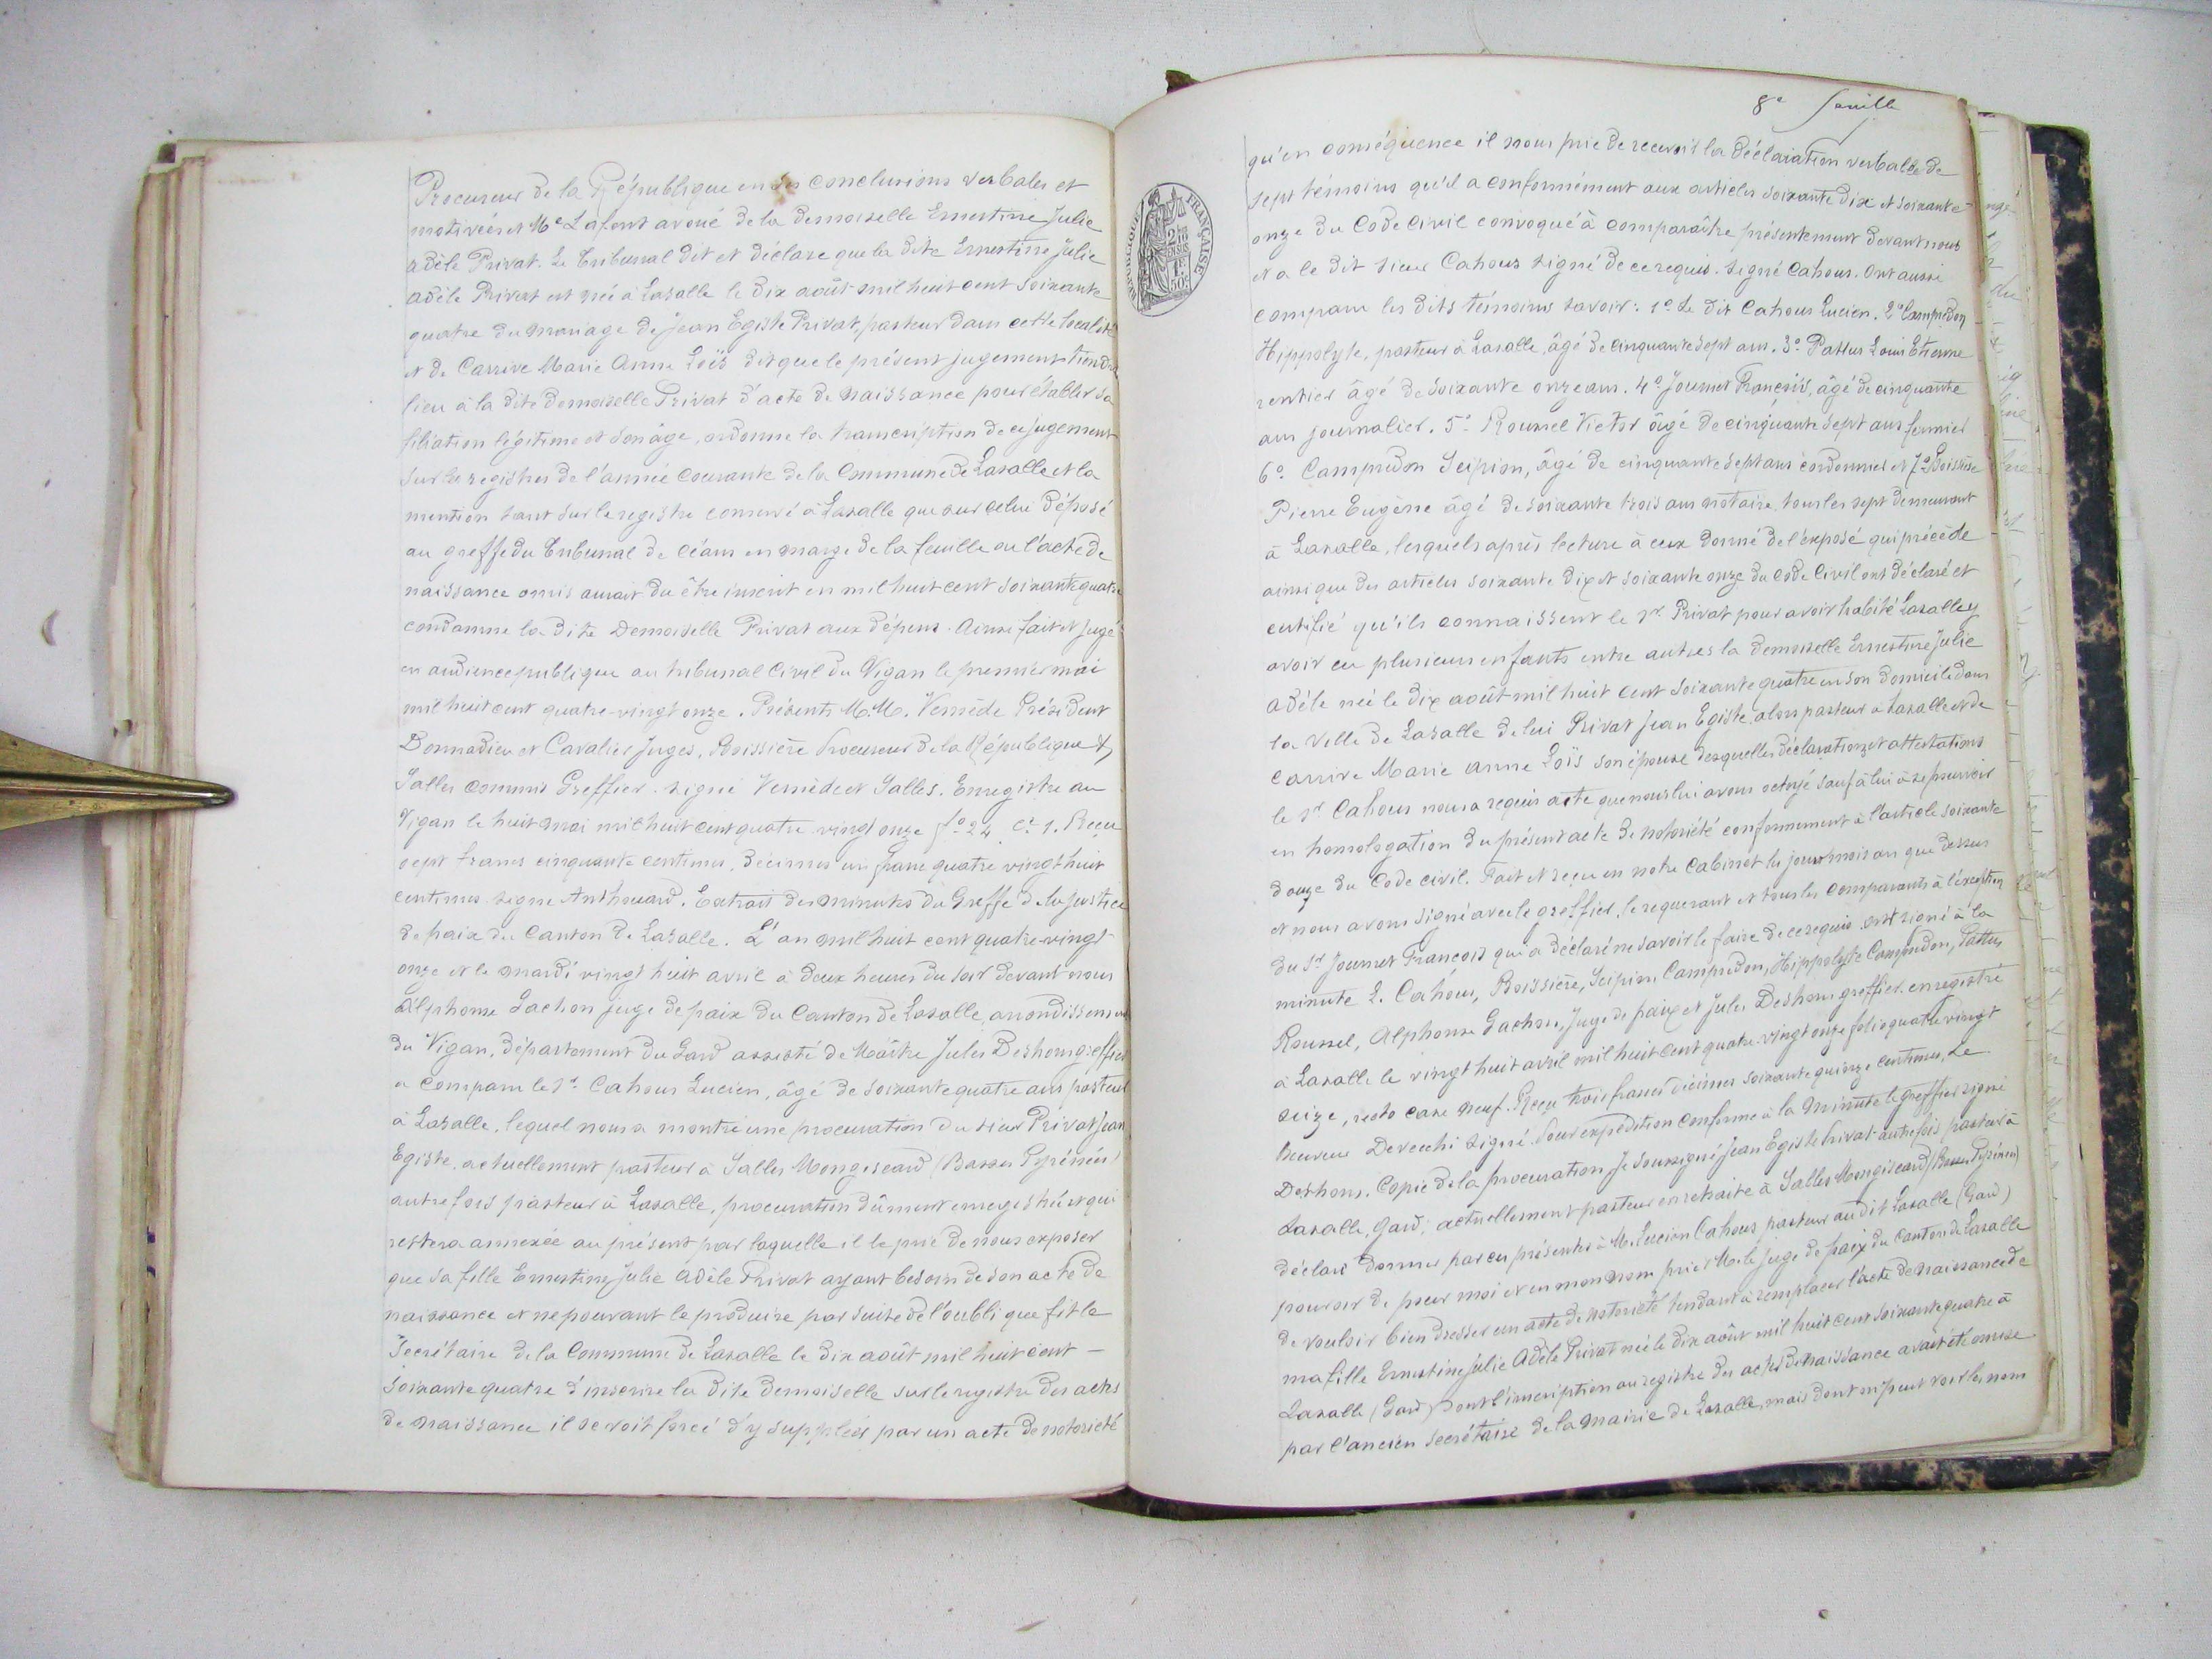 Procureur de la République en ses conclusions verbales et
motivées et Me Lafont avoué de la demoiselle Ernestine Julie
Adèle Privat. Le Tribunal dit et déclare que la dite Ernestine Julie
Adèle Privat est née à Lasalle le dix août mil huit cent soixante
quatre du mariage de Jean Egiste Privat, pasteur dans cette localité
et de Carrive Marie Anne Loïs dit que le présent jugement tiendra
lieu à la dite demoiselle Privat d'acte de naissance pour établir sa
filiation légitime et son âge, ordonne la transcription de ce jugement
sur les registres de l'année courante de la Commune de Lasalle et la
mention tant sur le registre conservé à Lasalle que sur celui déposé
au greffe du Tribunal de céans en marge de la feuille ou l'acte de
naissance omis aurait du être inscrit en mil huit cent soixante quatre
condamne la dite Demoiselle Privat aux dépens. Ainsi fait et jugé
en audience publique au tribunal Civil du Vigan le premier mai
mil huit cent quatre-vingt onze. Présents M.M. Vernède Président
Donnadieu et Cavalier Juges, Boissière Procureur de la République &
Salles commis Greffier. signé Vernède et Salles. Enregistré au
Vigan le huit mai mil huit cent quatre-vingt onze fo 24 Ce 1. Reçu
sept francs cinquante centimes, décimes un franc quatre vingt huit
centimes signé Anthouard. Extrait des minutes du Greffe de la justice
de paix du Canton de Lasalle. L'an mil huit cent quatre-vingt
onze et le mardi vingt huit avril à deux heures du soir devant nous
Alphonse Gachon juge de paix du Canton de Lasalle arrondissement
du Vigan, département du Gard assisté de Maître Jules Deshons greffier
a comparu le Sr. Cahous Lucien, âgé de soixante quatre ans pasteur
à Lasalle, lequel nous a montré une procuration du sieur Privat Jean
Egiste, actuellement pasteur à Salles Mongiscard (Basses Pyrénées)
autrefois pasteur à Lasalle, procuration dûment enregistrée et qui
restera annexée au présent par laquelle il le prie de nous exposer
que sa fille Ernestine Julie Adèle Privat ayant besoin de son acte de
naissance et ne pouvant le produire par suite de l'oubli que fit le
Secrétaire de la Commune de Lasalle le dix août mil huit cent —
soixante quatre d'inscrire la dite demoiselle sur le registre des actes
de naissance il se voit forcé d'y suppléer par un acte de notoriété
8e feuille
qu'en conséquence il nous prie de recevoir la déclaration verbale de
sept témoins qu'il a conformément aux articles soixante dix et soixante-
onze du Code civil convoqué à comparaître présentement devant nous
et a le dit sieur Cahous signé de ce requis. signé Cahous. Ont aussi
comparu les dits témoins savoir: 1o Le dit Cahous Lucien. 2o Campredon
Hippolyte, pasteur à Lasalle, âgé de cinquante sept ans. 3o Pattus Louis Etienne
rentier âgé de soixante onze ans. 4o Journet François, âgé de cinquante
ans journalier. 5o Roussel Victor âgé de cinquante sept ans fermier
6o Campredon Scipion, âgé de cinquante sept ans cordonnier et 7o Boissière
Pierre Eugène âgé de soixante trois ans notaire tous les sept demeurant
à Lasalle, lesquels après lecture à eux donné de l'exposé qui précède
ainsi que des articles soixante dix et soixante onze du Code Civil ont déclaré et
certifié qu'ils connaissent le Sr. Privat pour avoir habité Lasalle y
avoir eu plusieurs enfants entre autres la demoiselle Ernestine Julie
Adèle née le dix août mil huit cent soixante quatre en son domicile dans
la Ville de Lasalle de lui Privat Jean Egiste alors pasteur à Lasalle et de
Carrive Marie Anne Loïs son épouse desquelles déclarations et attestations
le Sr Cahous nous a requis acte que nous lui avons octroyé sauf à lui à se pourvoir
en homologation du présent acte de notoriété conformément à l'article soixante
douze du Code civil. Fait et reçu en notre Cabinet les jour mois an que dessus
et nous avons signé avec le greffier, le requerant et tous les comparants à l'exception
du Sr Journet François qui a déclaré ne savoir le faire de ce requis ont signé à la
minute L. Cahous, Boissière, Scipion Campredon, Hippolyte Campredon, Pattus
Roussel, Alphonse Gachon, Juge de paix et Jules Deshons greffier. enregistré
à Lasalle le vingt huit avril mil huit cent quatre-vingt onze folio quatre vingt
seize, recto case neuf. Reçu trois francs décimes soixante quinze centimes, Le
Receveur Devecchi signé. Pour expédition conforme à la Minute le greffier signé
Deshons. Copie de la procuration, Je soussigné Jean Egiste Privat autrefois pasteur à
Lasalle, Gard, actuellement pasteur en retraite à Salles Mongiscard (Basses Pyrénées)
déclare donner par ces présentes à M. Lucien Cahous pasteur au dit Lasalle (Gard)
pouvoir de pour moi et en mon nom prier M. le Juge de paix du Canton de Lasalle
de vouloir bien dresser un acte de notoriété tendant à remplacer l'acte de naissance de
ma fille Ernestine Julie Adèle Privat née le dix août mil huit cent soixante quatre à
Lasalle (Gard) dont l'inscription au registre des actes de naissance avait été omise
par l'ancien Secrétaire de la Mairie de Lasalle, mais dont on peut voir les nom